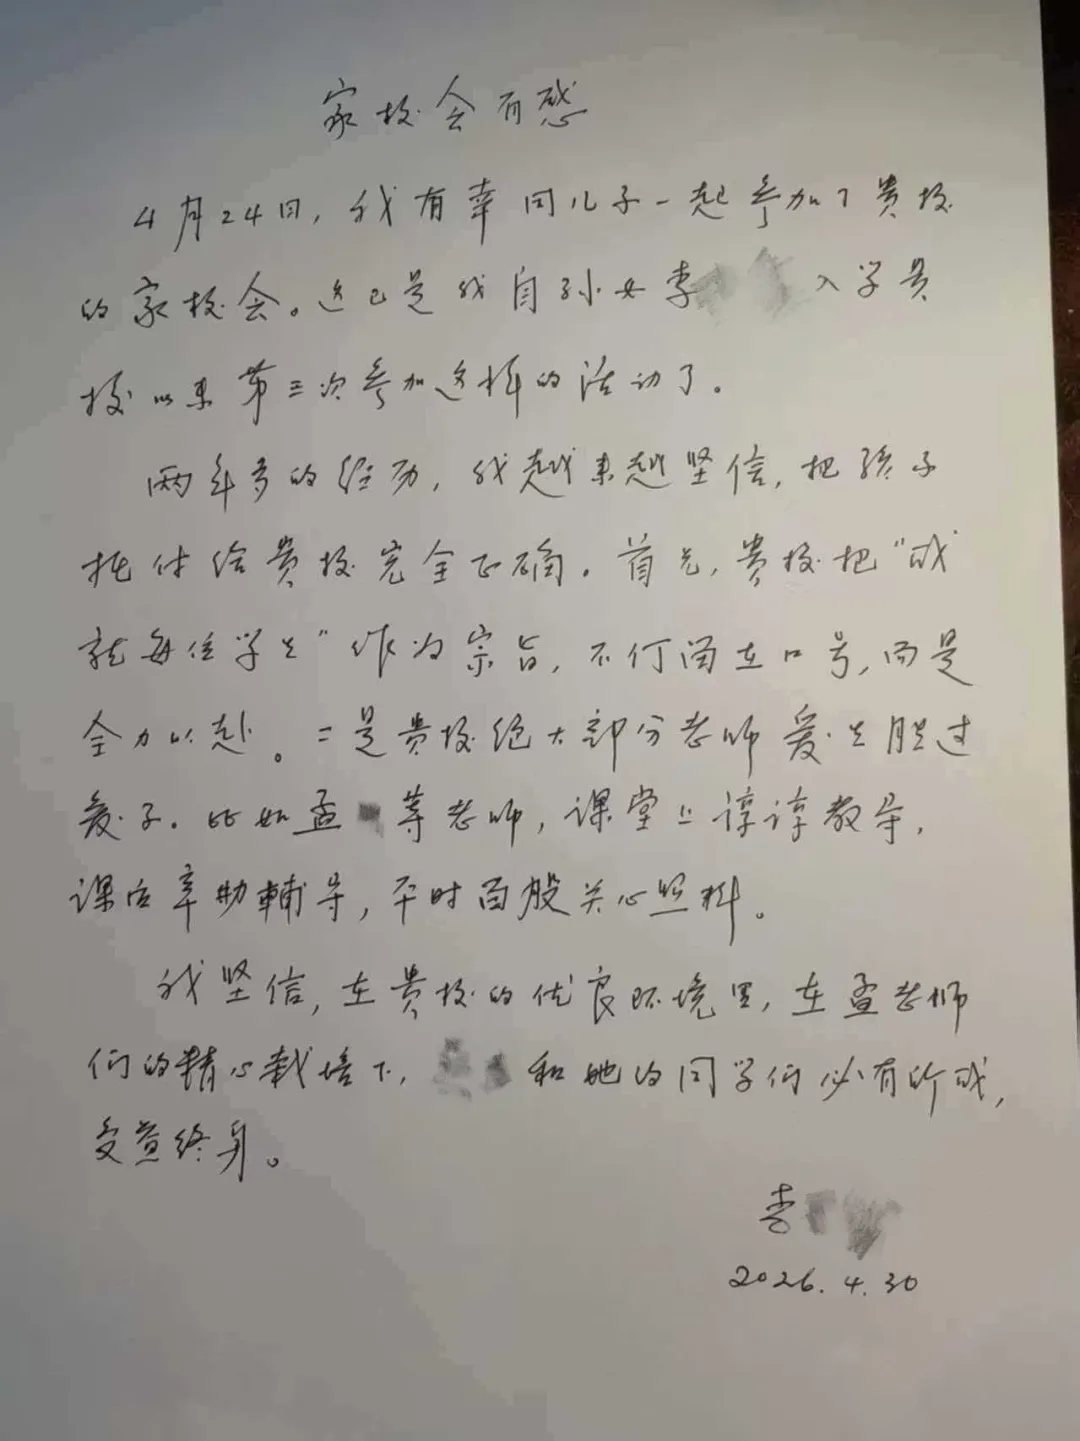 家校会有感
4月24日，我有幸同儿子一起参加了贵校
的家校会。这已是我自孙女李 入学贵
校以来第三次参加这样的活动了。
两年多的经历，我越来越坚信，把孩子
托付给贵校完全正确。首先，贵校把“成
就每位学生”作为宗旨，不仅停在口号，而是
全力以赴。二是贵校绝大部分老师爱生胜过
爱子。比如孟 等老师，课堂上谆谆教导，
课后辛勤辅导，平时百般关心照料。
我坚信，在贵校的优良环境里，在孟老师
们的精心栽培下， 和她的同学们必有所成，
受益终身。
李
2026.4.30